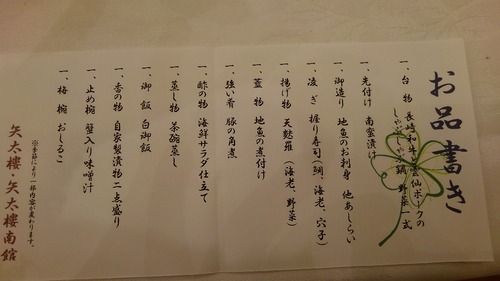 お品書き
一、台 物 長崎和牛と雲仙ポークの
しゃぶしゃぶ鍋 野菜一式
一、先付け 南蛮漬け
一、御造り 地魚のお刺身 他あしらい
一、凌 ぎ 握り寿司(鯛、海老、穴子)
一、揚げ物 天麩羅(海老、野菜)
一、蓋 物 地魚の煮付け
一、強い肴 豚の角煮
一、酢の物 海鮮サラダ仕立て
一、蒸し物 茶碗蒸し
一、御 飯 白御飯
一、香の物 自家製漬物二点盛り
一、止め椀 蟹入り味噌汁
一、梅 椀 おしるこ
※季節により一部内容が変わります。
矢太樓・矢太樓南館